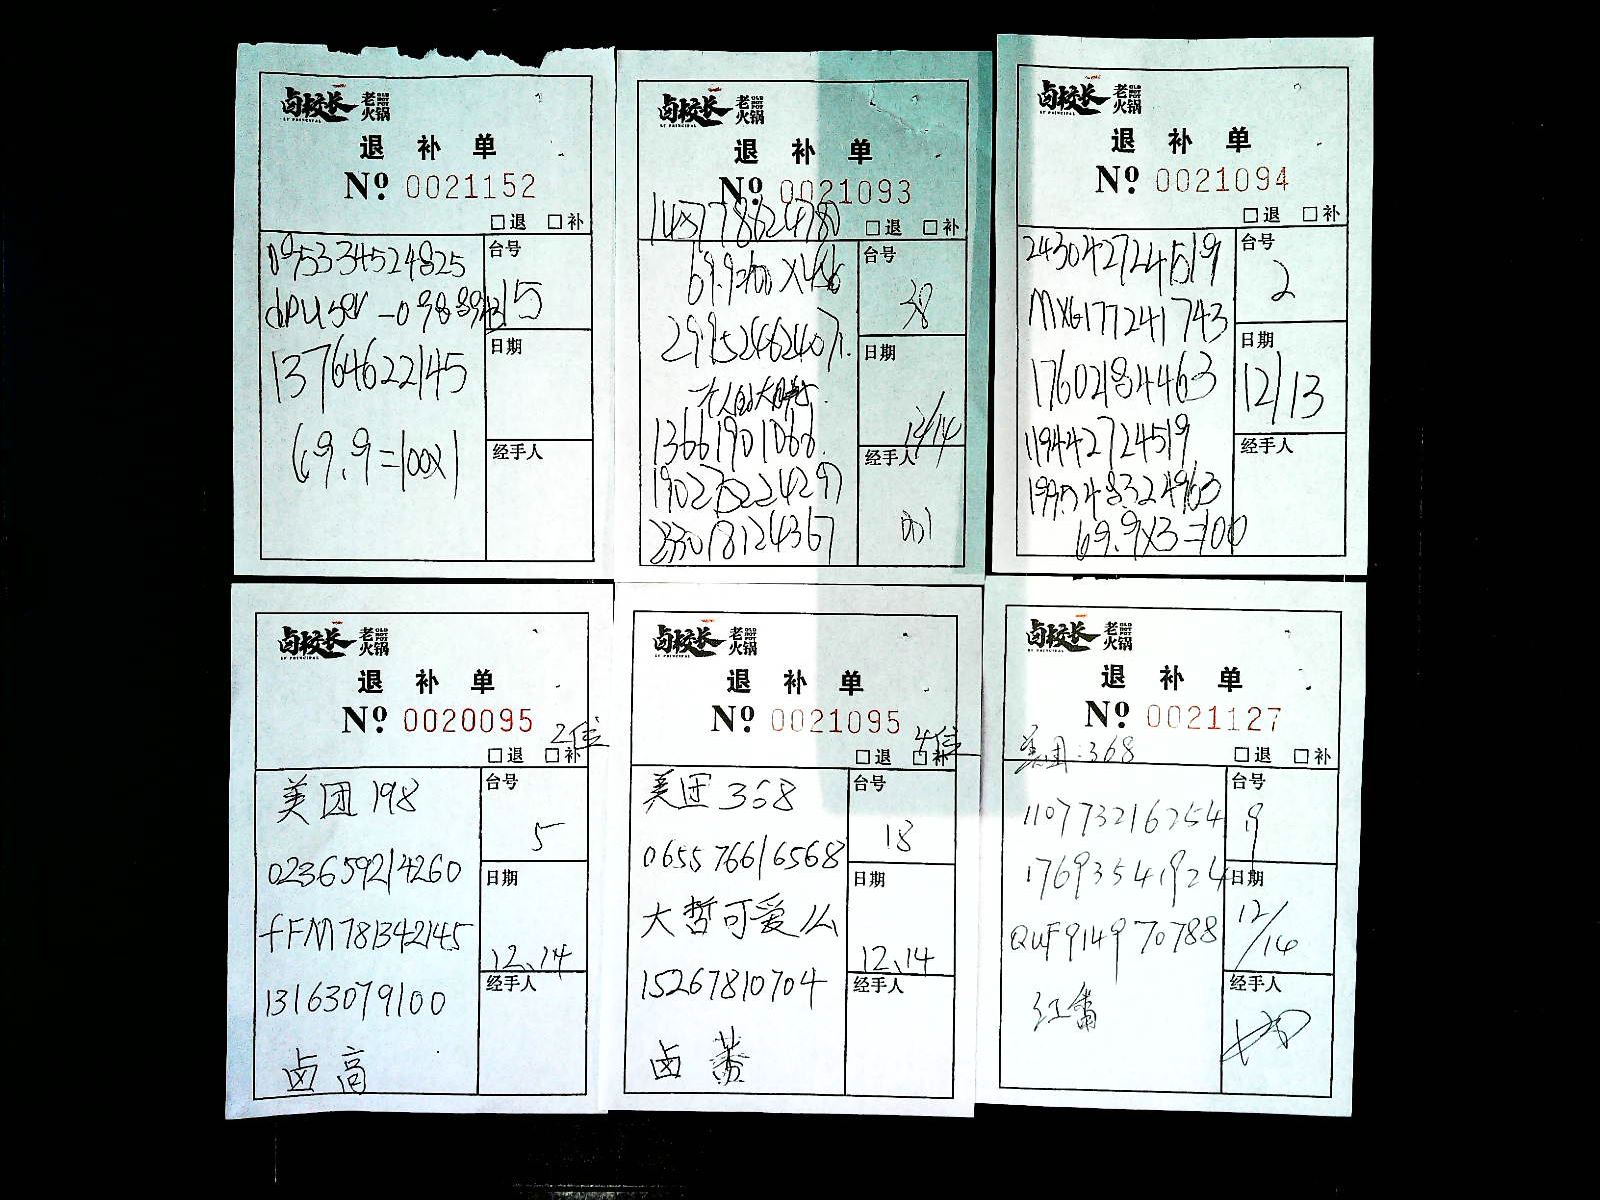 卤校长 老火锅
LU PRINCIPAL
OLD HOT POT
退 补 单
Nº 0021152
□退 □补
095334524825
台号
15
13764622145
日期
69.9=100x1
经手人
卤校长 老火锅
LU PRINCIPAL
OLD HOT POT
退 补 单
Nº 0021093
□退 □补
台号
38
日期
12/14
13661901066
经手人
卤校长 老火锅
LU PRINCIPAL
退 补 单
Nº 0021094
□退 □补
243042724519
台号
2
MXG177241743
日期
12/13
17602184463
119442724519
经手人
199548324963
69.9x3=100
卤校长 老火锅
LU PRINCIPAL
OLD HOT POT
退 补 单
Nº 0020095
2位
□退 □补
美团 198
台号
5
023659214260
日期
12、14
fFM781342145
经手人
13163079100
卤高
卤校长 老火锅
LU PRINCIPAL
OLD HOT POT
退 补 单
Nº 0021095
4位
□退 □补
美团 368
台号
18
065576616568
日期
12、14
大哲可爱么
经手人
15267810704
卤 蕃
卤校长 老火锅
LU PRINCIPAL
OLD HOT POT
退 补 单
Nº 0021127
美团:368
□退 □补
110773216254
台号
9
17693541924
日期
12/14
QUF914970788
经手人
红番